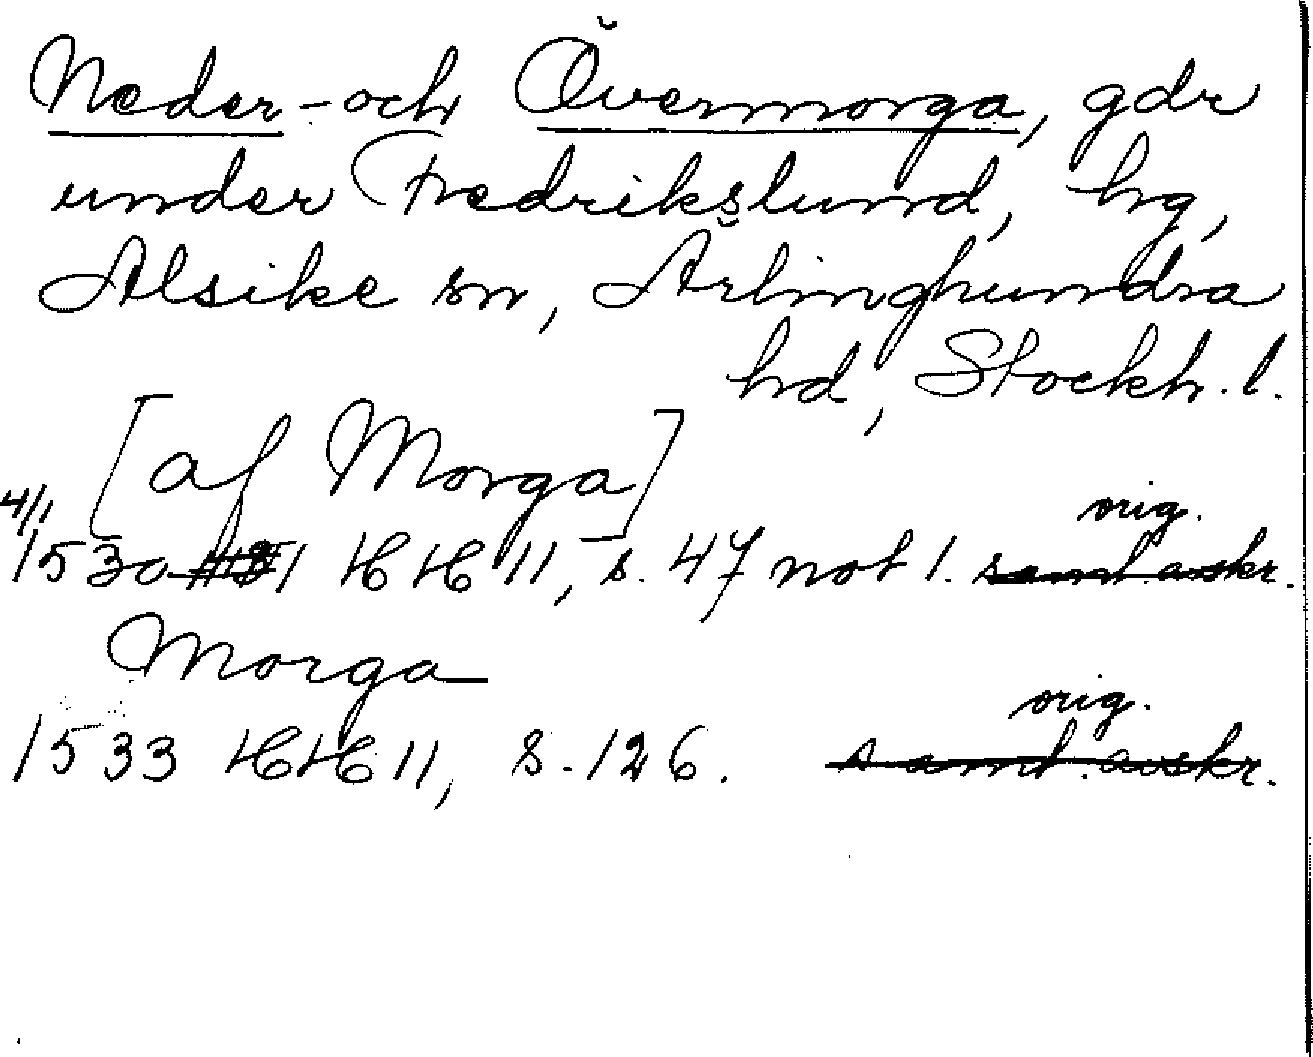 Neder- och Övermorga, gdr
under Fredrikslund, hg,
Alsike sn, Ärlinghundra
hd, Stockh. l.
[af Morga]
4/1 orig.
1530 HH 11, s. 47 not 1. saml. avskr.
Morga
orig.
1533 HH 11, s. 126. saml. avskr.